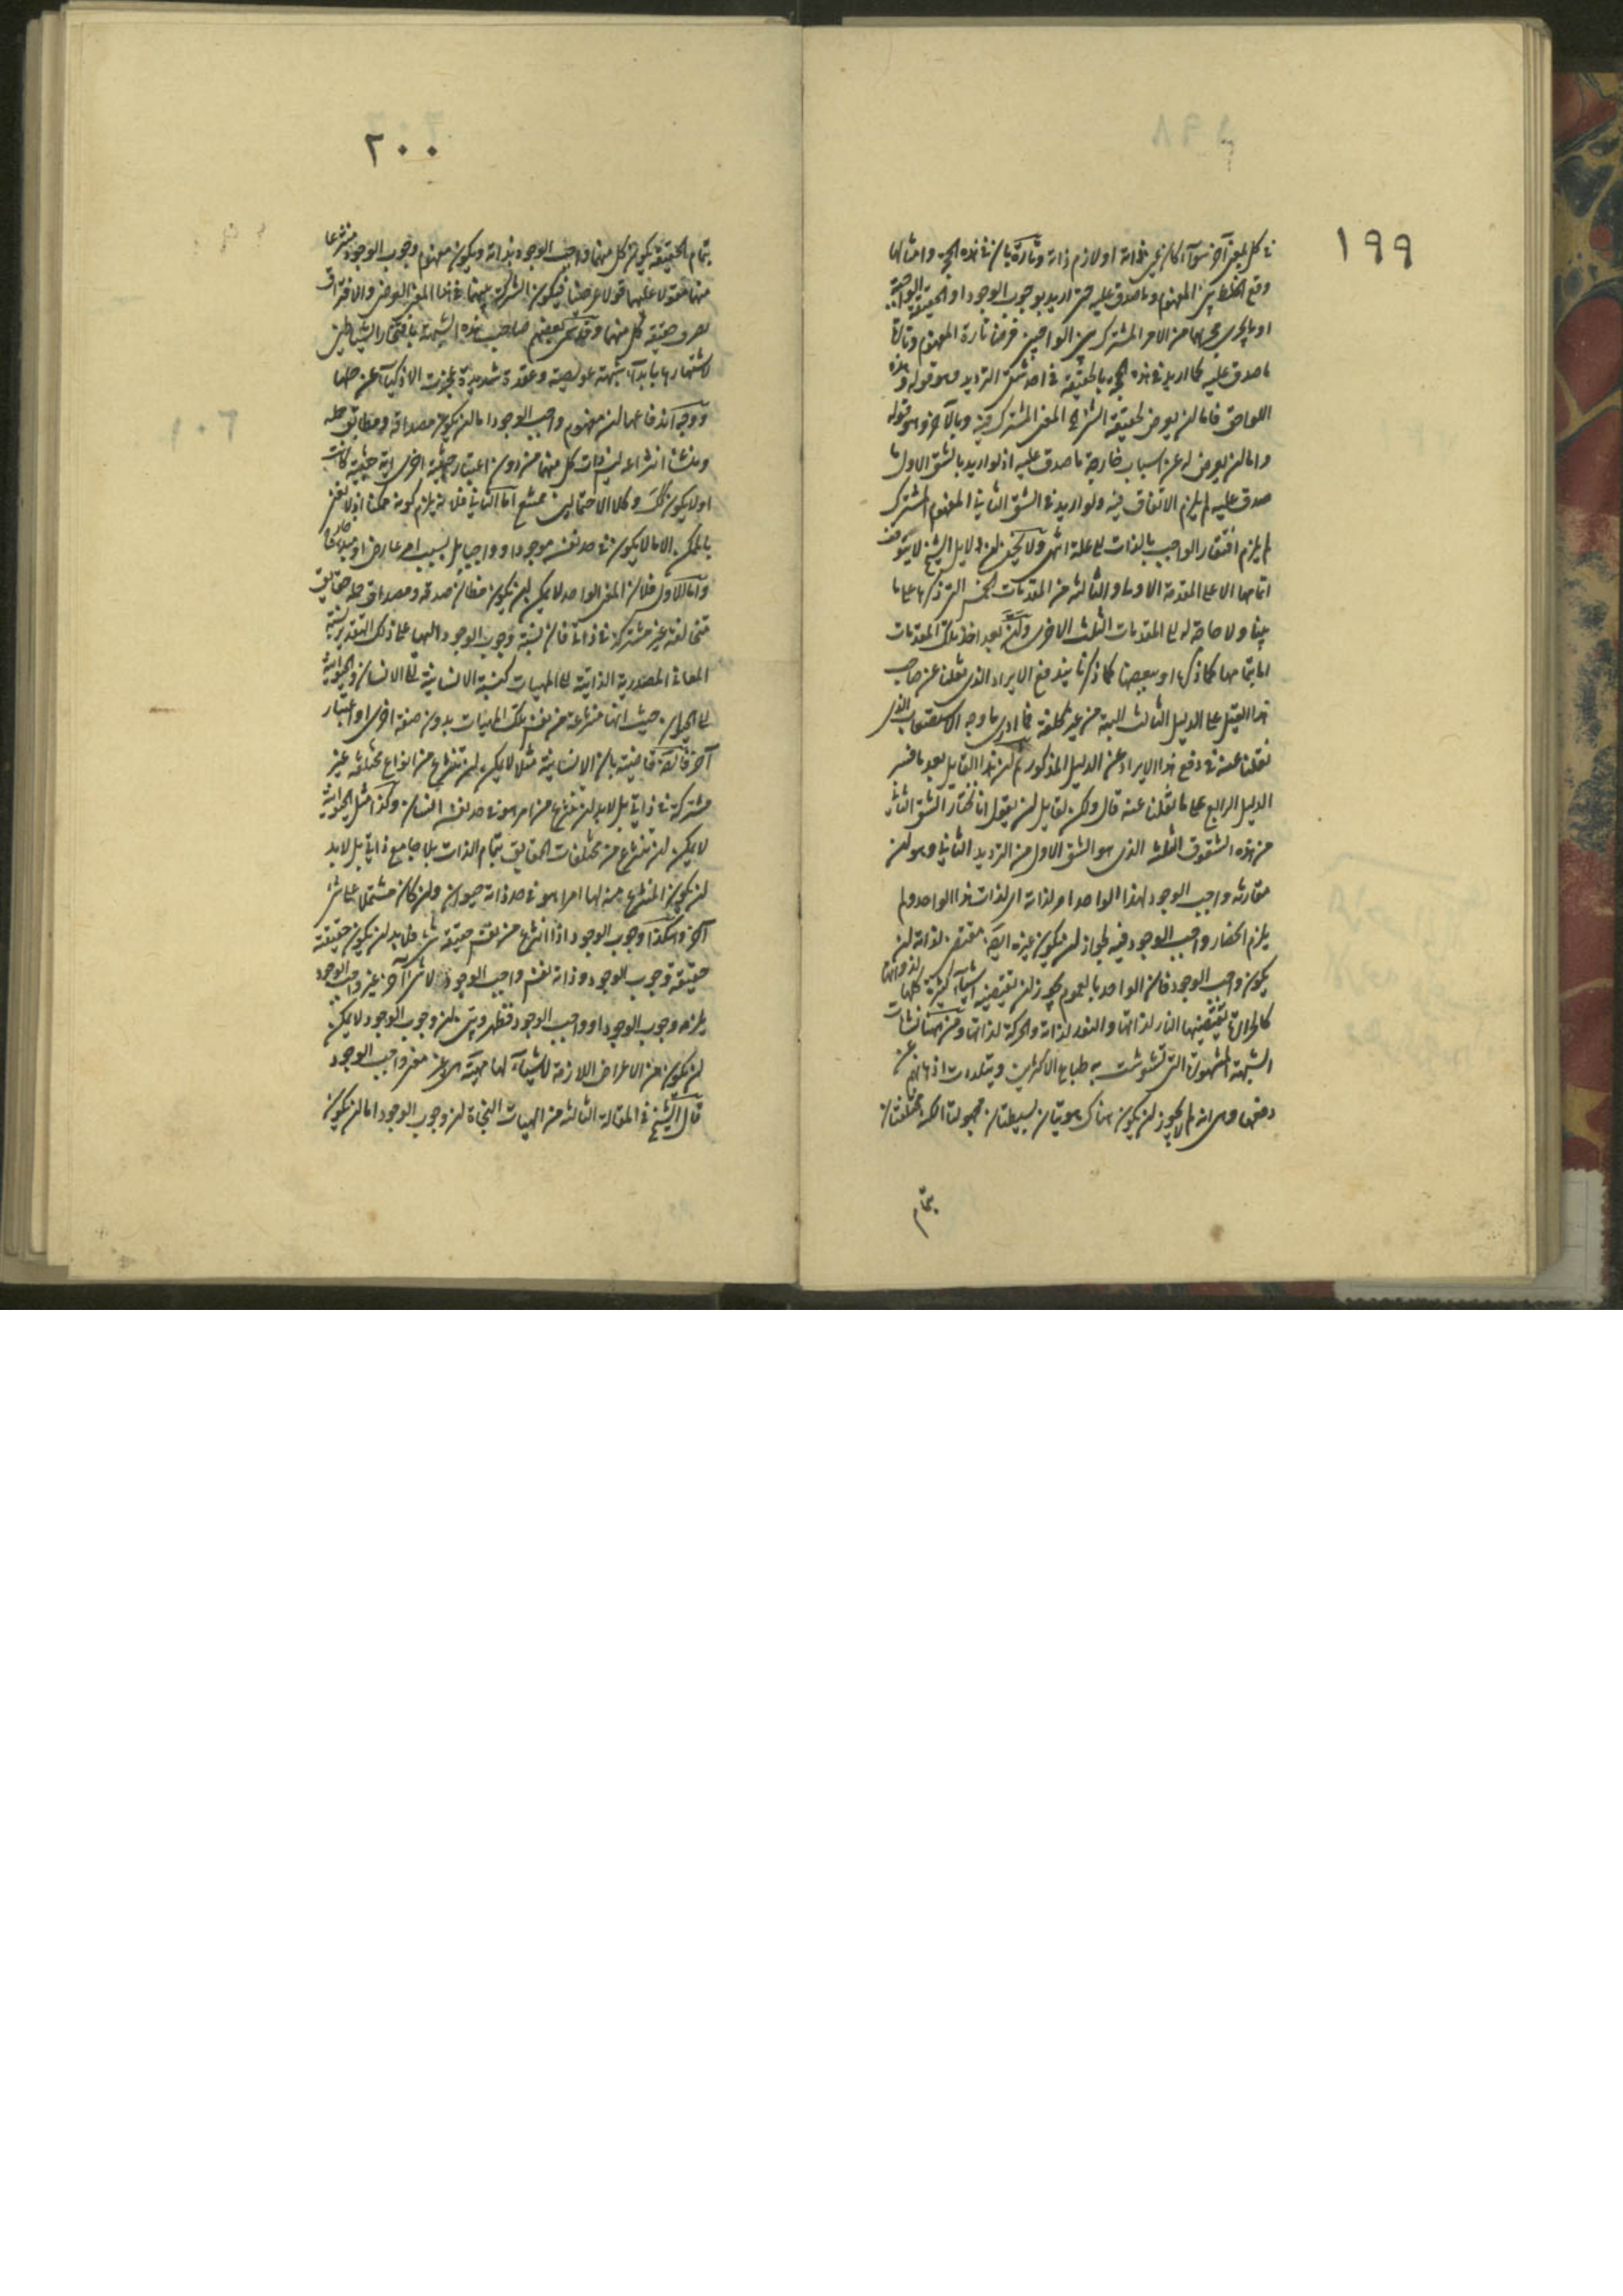 ١٩٩
في كل بمعنى آخر سواء كان بحسب ذاته او لازم ذاته وتارة بان في هذه الحجة وامثالها
وقع الخلط بين المفهوم وما صدق عليه حتى اريد بوجوب الوجود او الحقيقة الواجبة
او ما يجري مجراهما من الامر المشترك بين الواجبين فرضا تارة المفهوم وتارة
ما صدق عليه كما اريد في هذه الحجة بالحقيقة في احد شقي الترديد وهو قوله وهذه
اللواحق فاما ان يعرض لحقيقة الشيء المعنى المشترك فيه وبالآخر وهو قوله
واما ان يعرض له عن اسباب خارجة ما صدق عليه اذ لو اريد بالشق الاول ما
صدق عليه لم يلزم الاتفاق فيه ولو اريد في الشق الثاني المفهوم المشترك
لم يلزم افتقار الواجب بالذات الى علة انتهى ولا يخفى ان دلايل الشيخ لا يتوقف
اتمامها الا على المقدمة الاولى والثالثة من المقدمات الخمس التي ذكرها على ما
بينا ولا حاجة له الى المقدمات الثلث الاخرى ولكن بعد اخذ تلك المقدمات
اما بتمامها كما ذكرها او ببعضها كما ذكرنا يندفع الايراد الذي نقلنا عن صاحب
هذا القيل على الدليل الثالث البتة من غير كلفة فما ادري ما وجه الاستصعاب الذي
نقلنا عنه في دفع هذا الايراد عن الدليل المذكور ثم ان هذا القايل بعد ما فسر
الدليل الرابع على ما نقلنا عنه قال ولكن لقايل ان يقول انا نختار الشق الثالث
من هذه الشقوق الثلثة الذي هو الشق الاول من الترديد الثاني وهو ان
مقارنة واجب الوجود لهذا الواحد امر لذاته اي لذات هذا الواحد ولم
يلزم انحصار واجب الوجود فيه لجواز ان يكون غيره ايضا مقتض لذاته ان
يكون واجب الوجود فان الواحد بالعموم يجوز ان تقتضيه اشياء كثيرة كلها لذواتها
كالحرارة تقتضيها النار لذاتها والنور لذاته والحركة لذاتها ومن هنا نشأت
الشبهة المشهورة التي تشوشت به طباع الاكثرين وتبلدت اذهانهم عن
دفعها وهي انه لم لا يجوز ان يكون هناك هويتان بسيطتان مجهولتا الكنه مختلفتان
بتمام
٢٠٠
بتمام الحقيقة يكون كل منهما واجب الوجود بذاته ويكون مفهوم وجوب الوجود منتزعا
منهما مقولا عليهما قولا عرضيا فيكون الشركة بينهما في هذا المعنى العرضي والافتراق
بصرف حقيقة كل منهما وقد سمى بعضهم صاحب هذه الشبهة بافتخار الشياطين
لاشتهارها بابداء شبهة عويصة وعقدة شديدة عجزت الاذكياء عن حلها
ووجه اندفاعها ان مفهوم واجب الوجود اما ان يكون مصداقه ومطابق حمله
ومنشأ انتزاعه نفس ذات كل منهما من دون اعتبار حيثية اخرى اية حيثية كانت
او لا يكون كذلك وكلا الاحتمالين ممتنع اما الثاني فلانه يلزم كونه ممكنا اذ لا نعنى
بالممكن الا ما لا يكون في حد نفسه موجودا وواجبا بل بسبب امر عارض او مباين كما
واما الاول فلان المعنى الواحد لا يمكن ان يكون مطابق صدقه ومصداق حمله حقايق
متخالفة غير مشتركة في ذاتي فان نسبة وجوب الوجود اليهما على ذلك التقدير نسبة
المعاني المصدرية الذاتية الى المهيات كنسبة الانسانية الى الانسان والحيوانية
الى الحيوان حيث انها منتزعة من نفس تلك المهيات بدون صفة اخرى او اعتبار
آخر فالضرورة قاضية بان الانسانية مثلا لا يمكن ان تنتزع من انواع مختلفة غير
مشتركة في ذاتي بل لا بد ان تنتزع من امر هو في حد نفسه انسان وكذا مثل الحيوانية
لا يمكن ان تنتزع من مختلفات الحقايق بتمام الذات بلا جامع ذاتي بل لا بد
ان يكون المنتزع منه لها امرا هو في حد ذاته حيوان وان كان مشتملا على شيء
آخر وهكذا وجوب الوجود اذا انتزع من نفس حقيقة شيء فلا بد ان يكون حقيقته
حقيقة وجوب الوجود وذاته نفس واجب الوجود لا شيء آخر غير واجب الوجود
يلزمه وجوب الوجود او واجب الوجود فظهر وتبين ان وجوب الوجود لا يمكن
ان يكون من الاعراض اللازمة لاشياء لها مهية الا عن معنى واجب الوجود
قال الشيخ في المقالة الثالثة من الهيات النجاة ان وجوب الوجود اما ان يكون